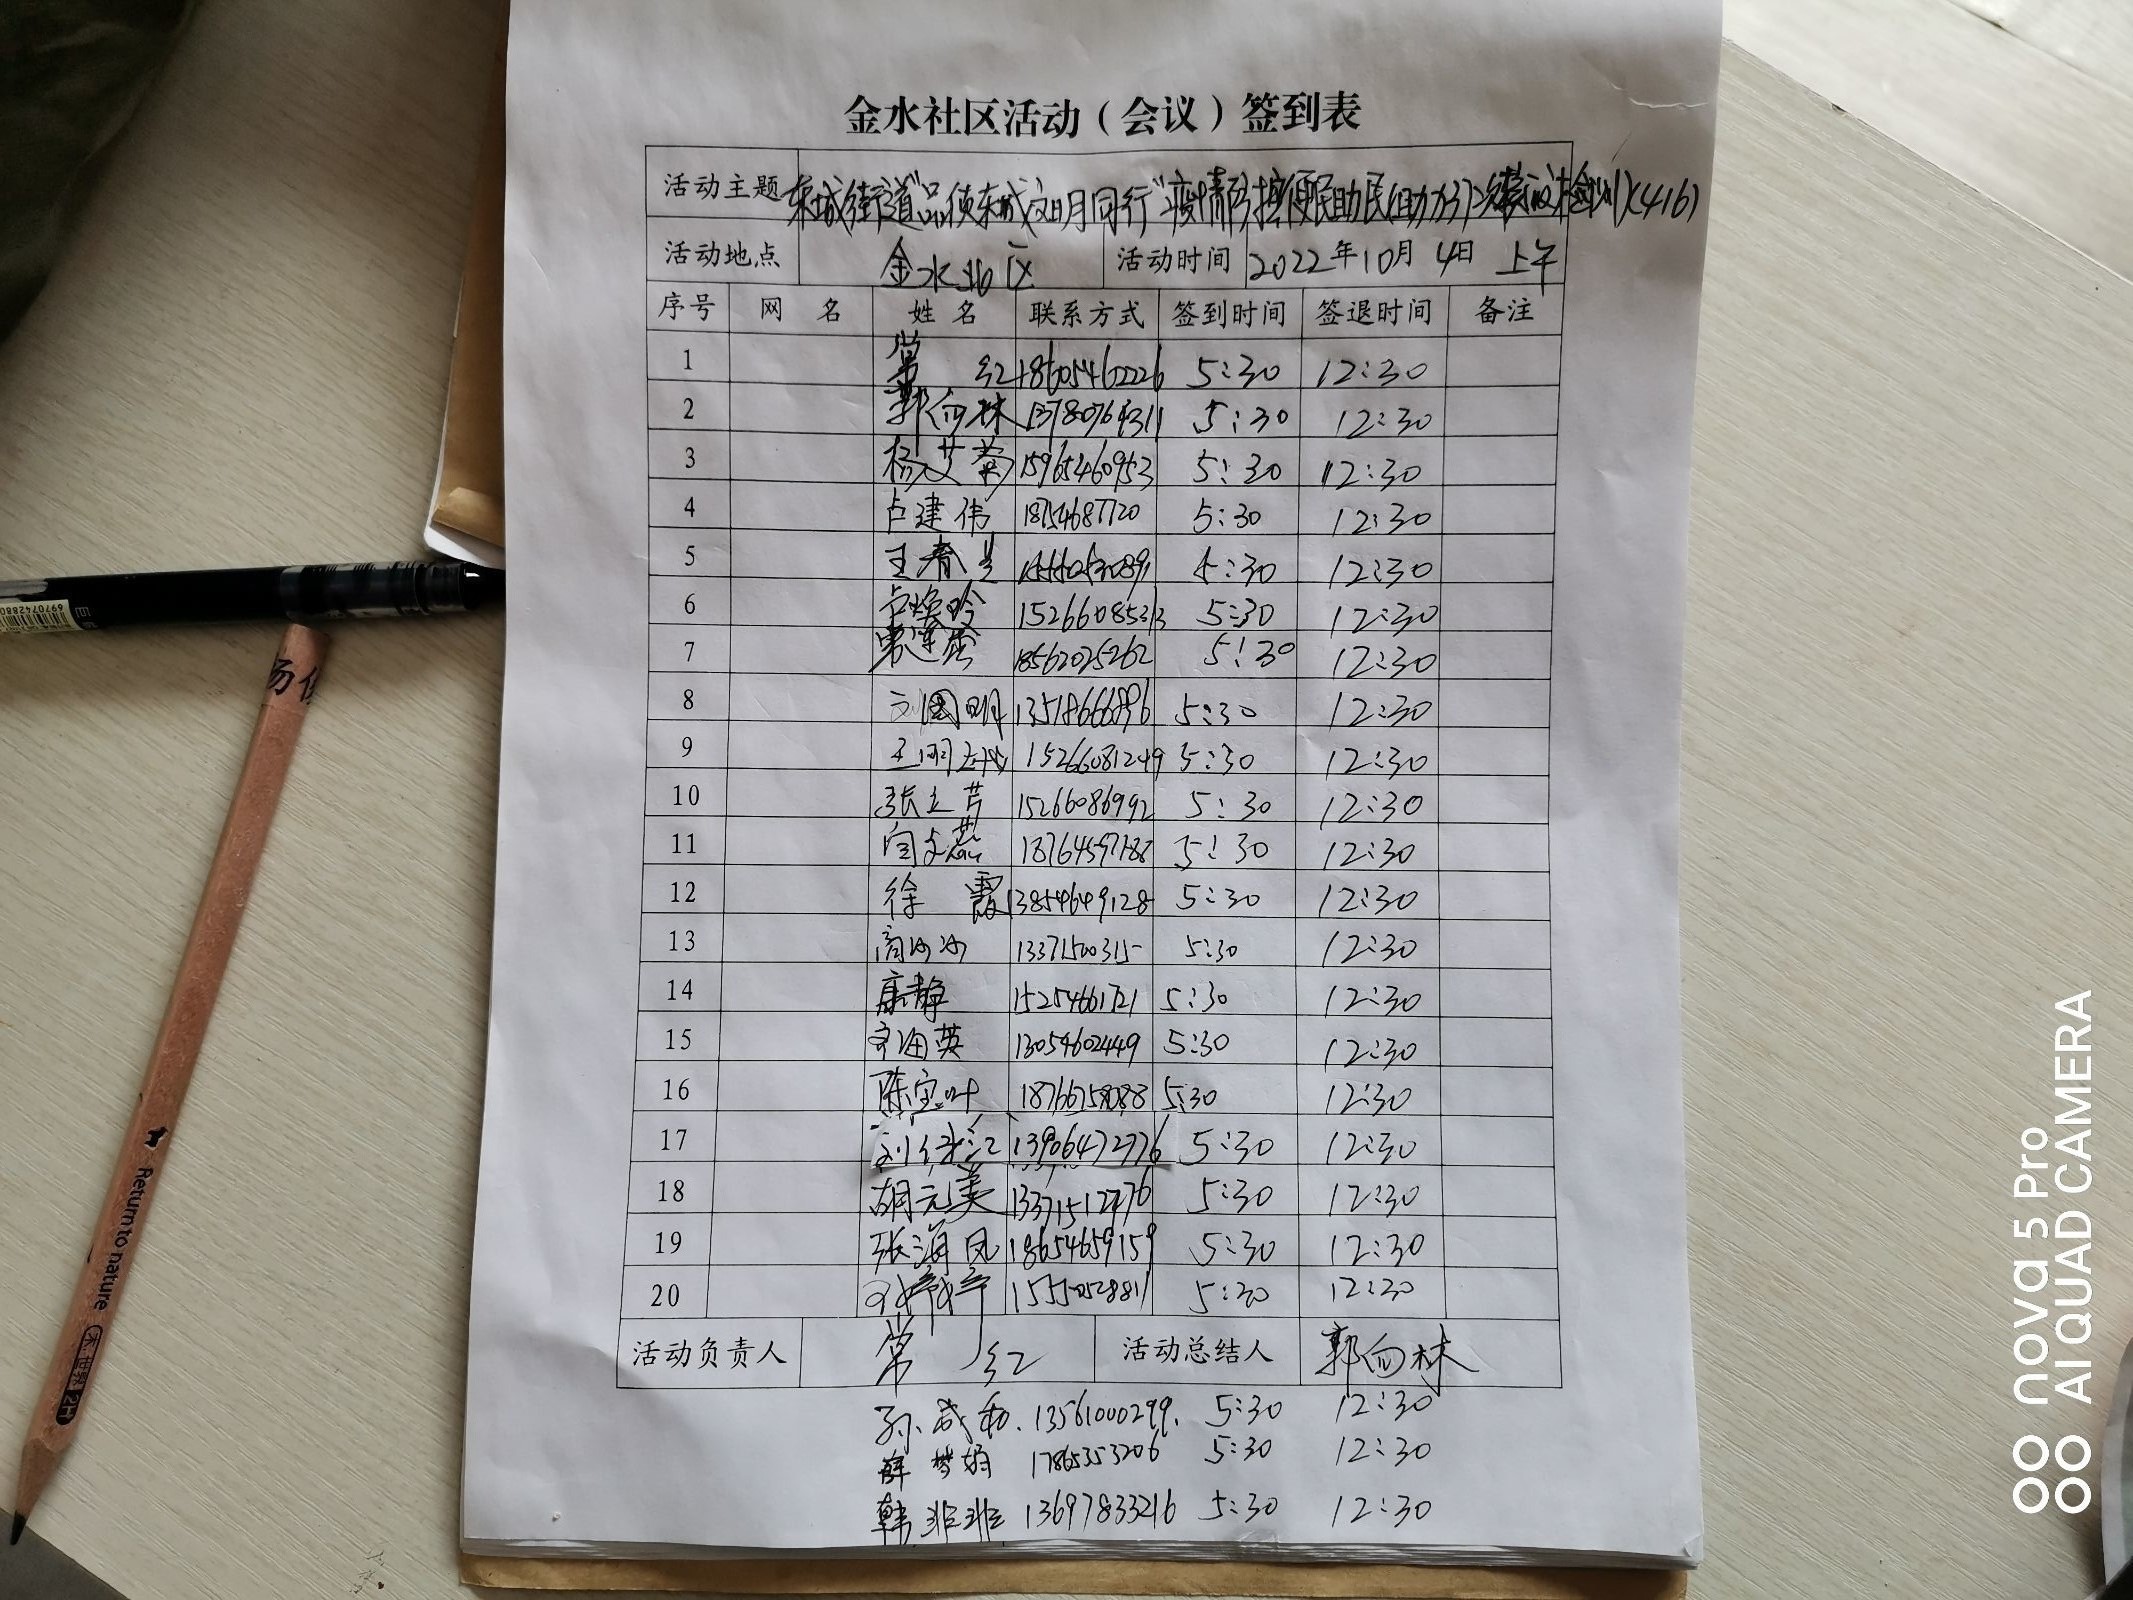 金水社区活动（会议）签到表
活动主题 东城街道"品质东城文明同行"疫情防控便民助民(助力372次核酸检测)(416)
活动地点 金水社区 活动时间 2022年10月4日 上午
序号 网 名 姓 名 联系方式 签到时间 签退时间 备注
1 常 红 18605462226 5:30 12:30
2 郭向林 13780764311 5:30 12:30
3 杨艾菊 15965460953 5:30 12:30
4 卢建伟 18754687720 5:30 12:30
5 王春兰 5:30 12:30
6 15266085313 5:30 12:30
7 18562025262 5:30 12:30
8 刘国明 13518666896 5:30 12:30
9 王丽 15266081249 5:30 12:30
10 张立芹 15266086992 5:30 12:30
11 闫文燕 18764597188 5:30 12:30
12 徐 霞 13854649128 5:30 12:30
13 商沙沙 13371500315 5:30 12:30
14 康静 15254661721 5:30 12:30
15 海英 13054602449 5:30 12:30
16 陈宝叶 18766758088 5:30 12:30
17 刘 江 13906472776 5:30 12:30
18 胡元美 13371512776 5:30 12:30
19 张海凤 18654659159 5:30 12:30
20 5:30 12:30
活动负责人 常 红 活动总结人 郭向林
孙成和 13561000299 5:30 12:30
薛梦娟 17865353206 5:30 12:30
韩非非 13697833216 5:30 12:30
Return to nature
不·世界 2H
nova 5 Pro
AI QUAD CAMERA